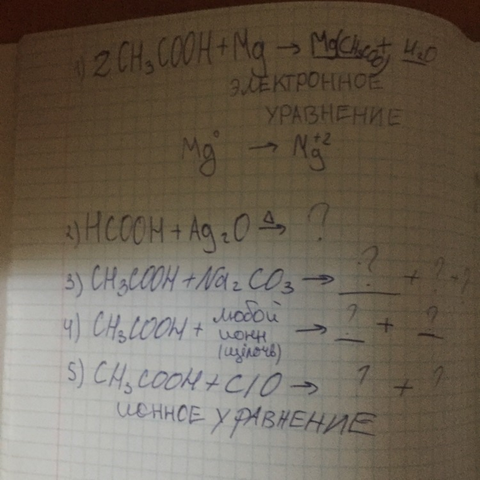 1) 2 CH₃COOH + Mg → Mg(CH₃COO) + H₂O
ЭЛЕКТРОННОЕ
УРАВНЕНИЕ
Mg⁰ → Mg⁺²
2) HCOOH + Ag₂O →^Δ ?
3) CH₃COOH + Na₂CO₃ → ? + ? + ?
4) CH₃COOH + любой ионн (щёлочь) → ? + ?
5) CH₃COOH + C/O → ? + ?
ИОННОЕ УРАВНЕНИЕ